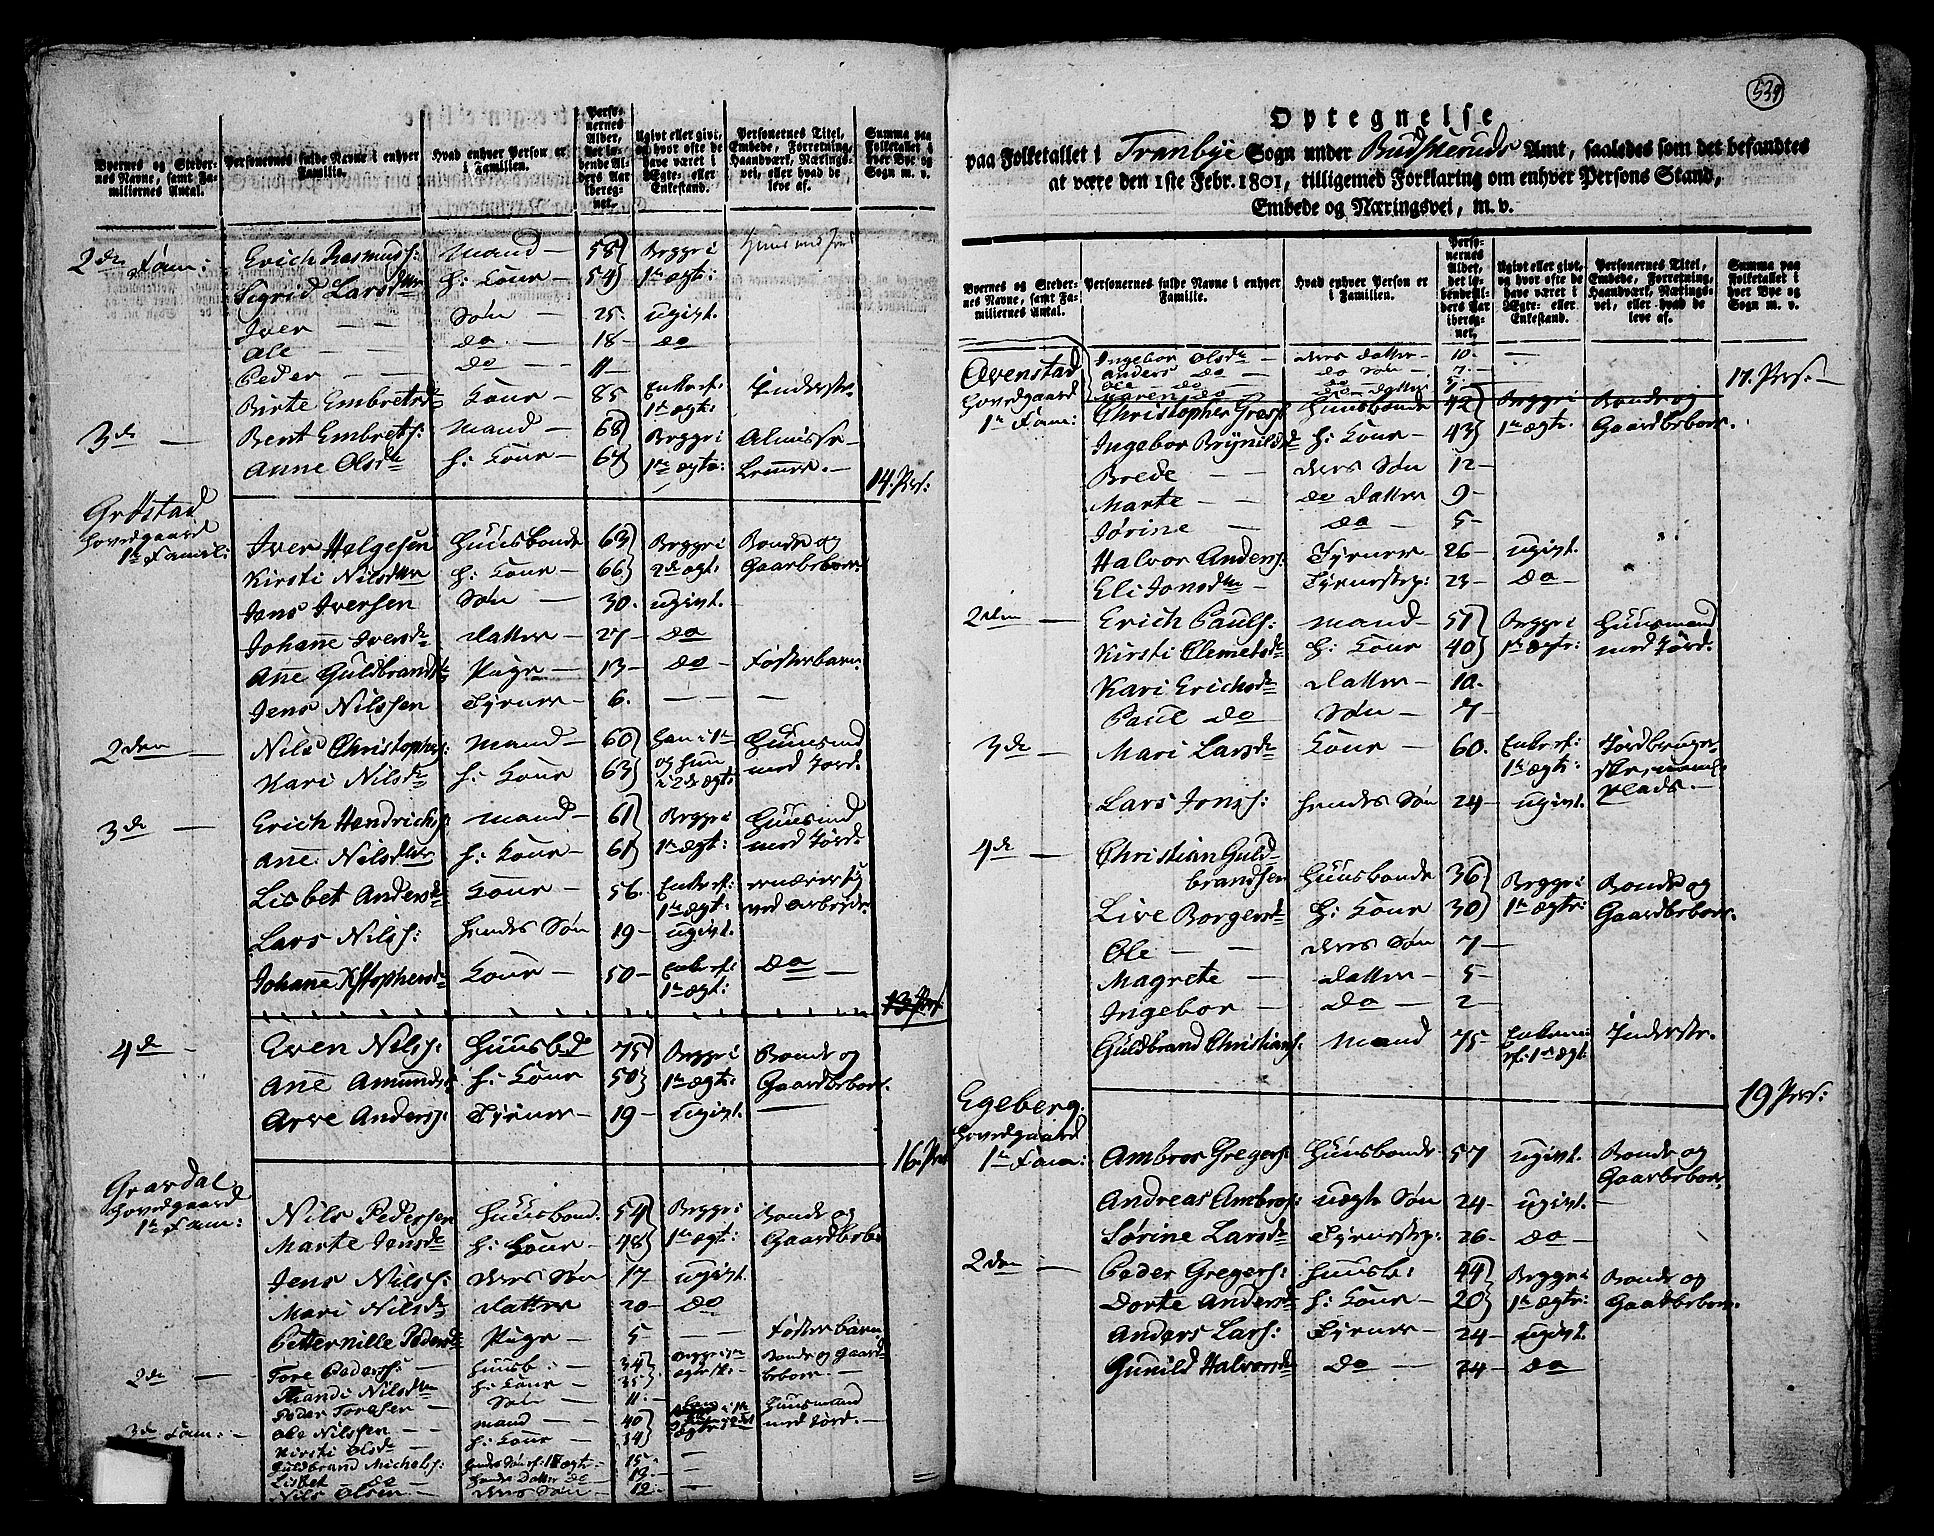 Byernes og Steder- nes Navne, samt Fa- miliernes Antal. | Personernes fulde Navne i enhver Familie. | Hvad enhver Person er i Familien. | Perso- nernes Alder, det lø- bende Al- ders Aar iberegnet. | Ugivt eller givt, og hvor ofte de have været i Egte- eller Enkestand. | Personernes Titel, Embede, Forretning, Haandværk, Nærings- vei, eller hvad de leve af. | Summa paa Folketallet i hver Bye og Sogn m. v.
2den Fam: Erich Rasmuss: Mand 58 Begge i
Sigrid Larsdtr h: Kone 54 1te ægt:
Iver — Søn 25 ugivt
Ole — do 18 do
Peder — do 11
Birte Embretsd Kone 85 Enke ef: 1te ægt: Inderste
3de — Bent Embrets: Mand 68 Begge i Almisse
Anne Olsdtr h: Kone 67 1te ægte: Lemmer.
14. Pers:
Grøstad
Hovedgaard
1te Famil: Iver Helgesen Huusbonde 63 Begge i Bonde og
Kirsti Nilsdtr h: Kone 66 2de ægt: Gaardbeboer
Jens Iversen Søn 30. ugivt.
Johanne Iversd Datter 27 do
Ane Guldbrandsd Pige 13 do Fosterbarn
Jens Nilssen Tyener 6.
2den — Nils Christophers: Mand 60 han i 1te Huusmd
Kari Nilsd h: Kone 63 og hun i 2de ægt: med Jord.
3de — Erich Hendrichs: Mand 61 Begge i Huusmd
Ane Nilsdtr h: Kone 61 1te ægt: med Jord.
Lisbet Andersd Kone 56. Enke ef: 1te ægt: ernærer sig ved Arbeyde.
Lars Nils: hendes Søn 19 ugivt.
Johane Kstophersd Kone 50 Enke ef: 1te ægt: do
13 Pers
4de — Even Nils: Huusbd 75 Begge i Bonde og
Ane Amundsd h: Kone 50 1te ægt: Gaardbeboer.
Arve Anders: Tyener 19 ugivt.
16. Pers
Gravdal
Hovedgaard
1te Fam: Nils Pedersen Huusbond. 54 Begge i Bonde og
Marte Jensd h: Kone 48 1te ægt: Gaardbebo
Jens Nils: deres Søn 17 ugivt
Mari Nilsd Datter 20 do
Petternille Pedersd Pige 5 Fosterbarn
2de — Tore Peders: Huusb: 34 Bonde og Gaard-
Randi Nilsdtr h: Kone 35 beboer.
Peder Toresen Søn 11.
3de Fam: Ole Nilssen Mand 40 Huusmand
Kirsti Olsd h: Kone 34 med Jord.
Guldbrand Michels: 15
Lisbet do hendes Datter do 13
Nils Olsen deres Søn 12
539
Optegnelse
paa Folketallet i Tranbye Sogn under Budskeruds Amt, saaledes som det befandtes
at være den 1ste Febr. 1801, tilligemed Forklaring om enhver Persons Stand,
Embede og Næringsvei, m. v.
Byernes og Steder- nes Navne, samt Fa- miliernes Antal. | Personernes fulde Navne i enhver Familie. | Hvad enhver Person er i Familien. | Perso- nernes Alder, det lø- bende Al- ders Aar iberegnet. | Ugivt eller givt, og hvor ofte de have været i Egte- eller Enkestand. | Personernes Titel, Embede, Forretning, Haandværk, Nærings- vei, eller hvad de leve af. | Summa paa Folketallet i hver Bye og Sogn m. v.
Ingebor Olsd deres Datter 10.
Anders do do Søn 7.
Ole do do
Karen do do Datter
17. Pers.
Ovenstad
Hovedgaard
1te Fam: Christopher Gress: Huusbonde 42 Begge i Bonde og
Ingebor Brynilsd h: Kone 43 1te ægt. Gaardbeboer.
Brede — deres Søn 12
Marte — do Datter 9
Jørine — do 5
Halvor Anders: Tyener 26 ugivt.
Eli Jonsdtr Tyenestep: 23 do
2den — Erich Pauls: Mand 51 Begge i Huusmand
Kirsti Clemetsd h: Kone 40 1te ægte: med Jord.
Kari Erichsd Datter 10.
Paul do Søn 7
3de — Mari Larsd Kone 60. Enke ef: 1te ægt: Jordbruge-
Plads.
Lars Jons: hendes Søn 24 ugivt.
4de — Christian Guld-
brandsen Huusbonde 36 Begge i Bonde og
Live Borgersd h: Kone 30 1te ægte: Gaardbeboer.
Ole — deres Søn 7
Magrete — Datter 5
Ingebor — do 2
Guldbrand Christians: Mand 75 Enkemd ef: 1te ægt Inderste.
19 Pers:
Egeberg.
Hovedgaard
1te Fam: Ambros Gregers: Huusbonde 57 ugivt. Bonde og
Gaardbeboer.
Andreas Ambros: uægte Søn 24 ugivt.
Sørine Larsd Tyenestep: 26 do
2den — Peder Gregers: Huusb: 44 Begge i Bonde og
Dorte Andersd h: Kone 20 1te ægte: Gaardbeboer.
Anders Lars: Tyener 24 ugivt
Gunild Halvorsd do 24 do